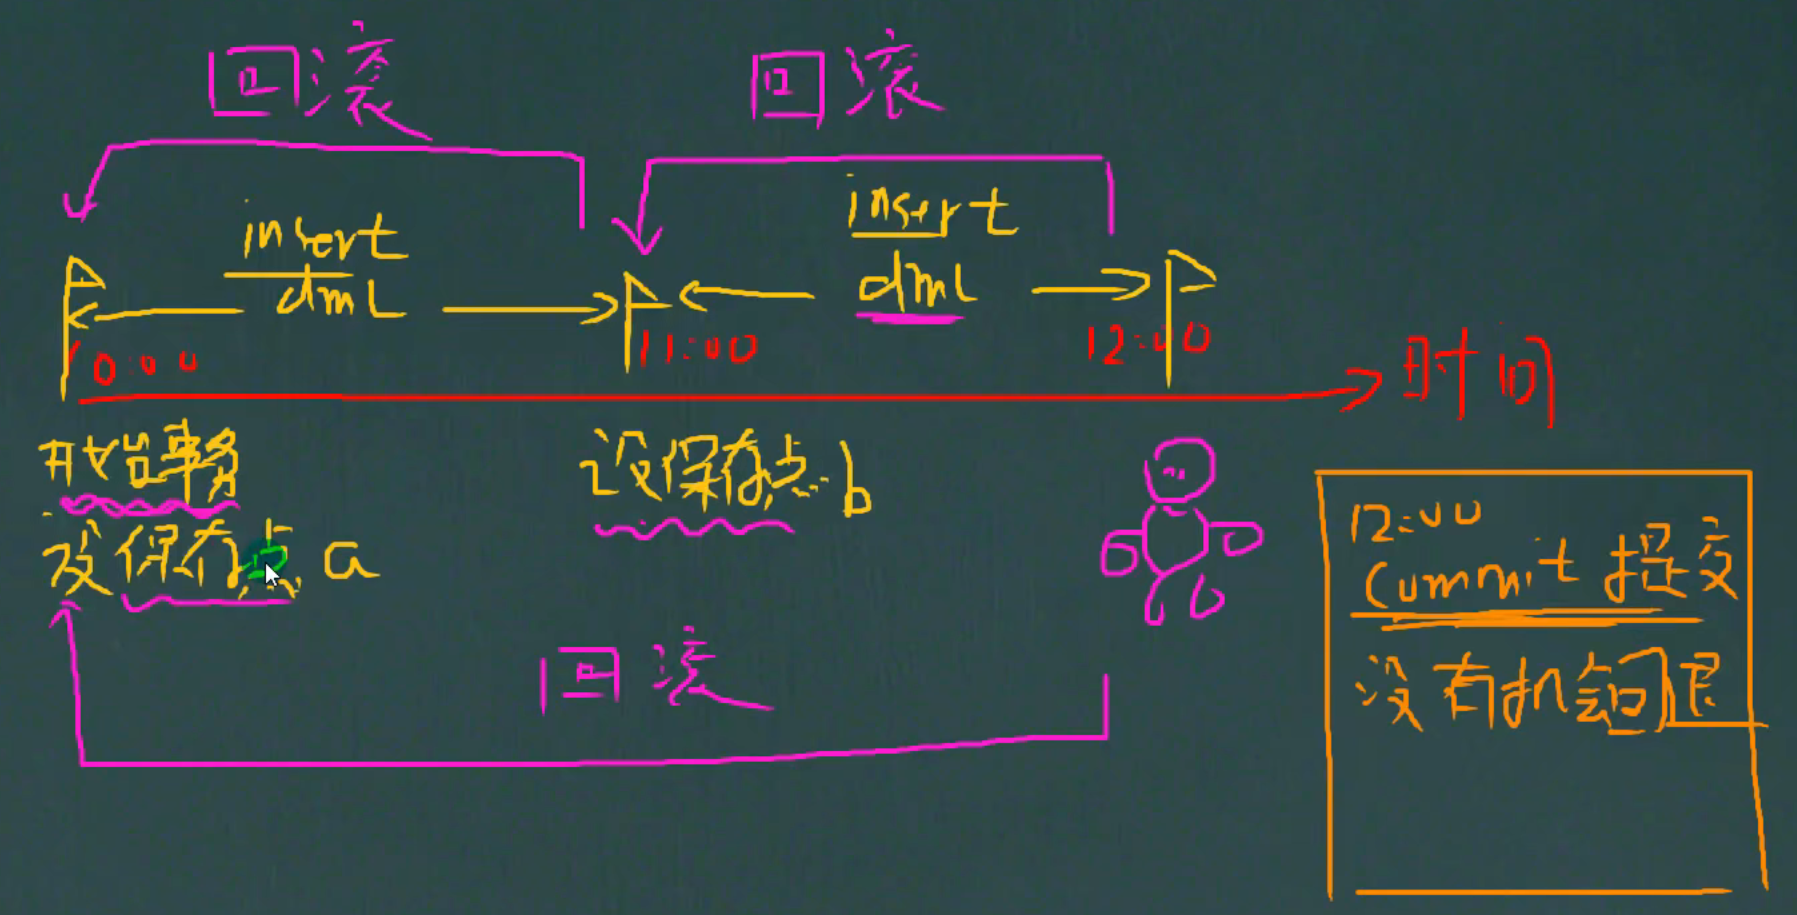 回滚
回滚
insert
dml
insert
dml
10:00
11:00
12:00
时间
开始事务
设保存点 a
设保存点 b
回滚
12:00
commit 提交
没有机会回退